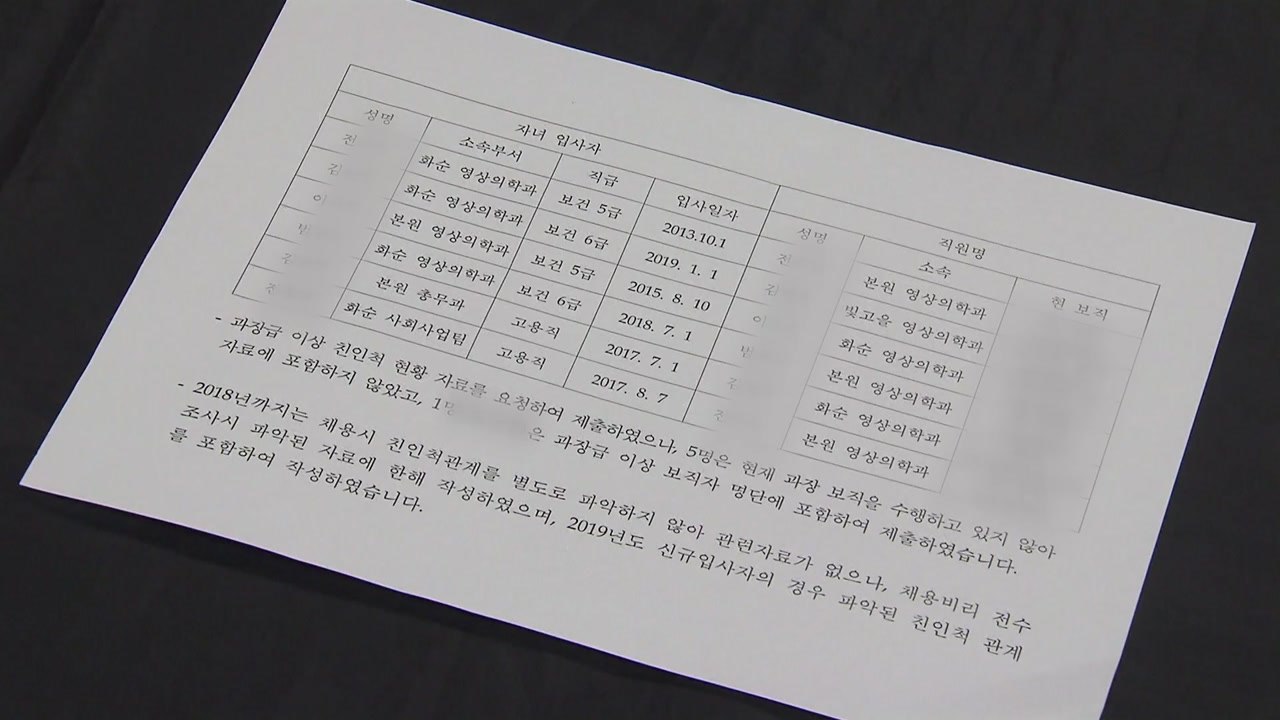 자녀 입사자 직원명
성명 소속부서 직급 입사일자 성명 소속 현 보직
전 화순 영상의학과 보건 5급 2013.10.1 전 본원 영상의학과
김 화순 영상의학과 보건 6급 2019. 1. 1 김 빛고을 영상의학과
이 본원 영상의학과 보건 5급 2015. 8. 10 이 화순 영상의학과
화순 영상의학과 보건 6급 2018. 7. 1 본원 영상의학과
본원 총무과 고용직 2017. 7. 1 화순 영상의학과
화순 사회사업팀 고용직 2017. 8. 7 본원 영상의학과
- 과장급 이상 친인척 현황 자료를 요청하여 제출하였으나, 5명은 현재 과장 보직을 수행하고 있지 않아
자료에 포함하지 않았고, 1명 은 과장급 이상 보직자 명단에 포함하여 제출하였습니다.
- 2018년까지는 채용시 친인척관계를 별도로 파악하지 않아 관련자료가 없으나, 채용비리 전수
조사시 파악된 자료에 한해 작성하였으며, 2019년도 신규입사자의 경우 파악된 친인척 관계
를 포함하여 작성하였습니다.